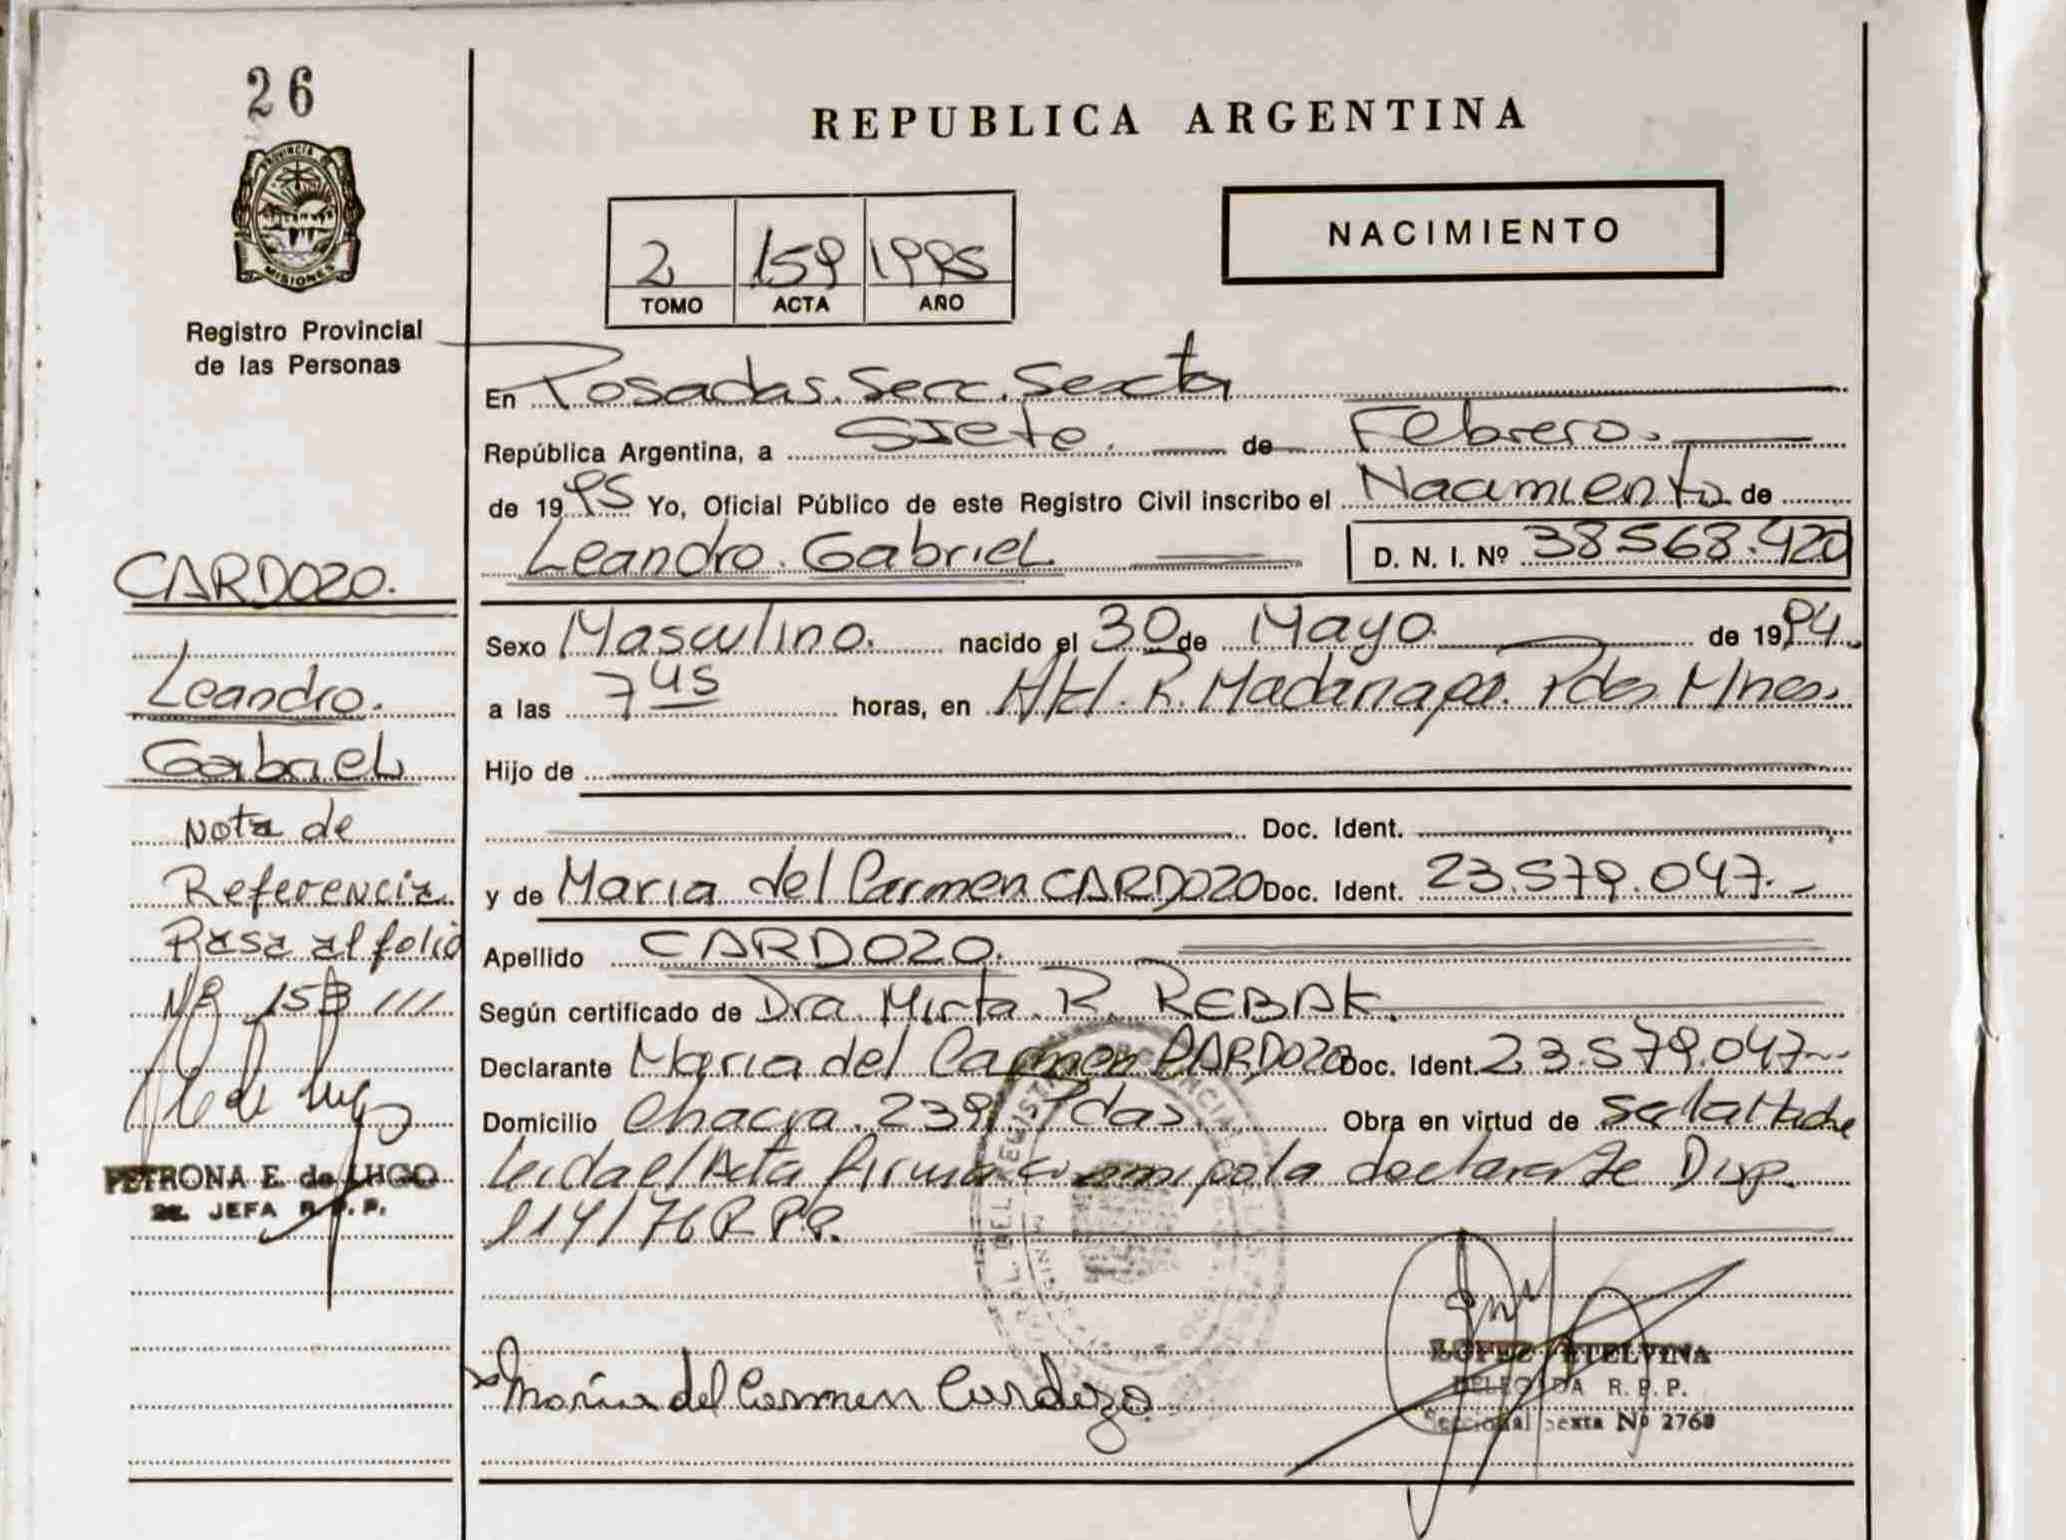 26
PROVINCIA DE
MISIONES
Registro Provincial
de las Personas
REPUBLICA ARGENTINA
NACIMIENTO
2 159 1995
TOMO ACTA AÑO
En Posadas. Secc. Sexta
República Argentina, a Siete. de Febrero.
de 1995 Yo, Oficial Público de este Registro Civil inscribo el Nacimiento de
Leandro. Gabriel D. N. I. Nº 38568.420
Sexo Masculino. nacido el 30 de Mayo. de 1994
a las 7 45 horas, en R. Madariaga. Pdas Mnes.
Hijo de
Doc. Ident.
y de Maria del Carmen CARDOZO Doc. Ident. 23.579.047.-
Apellido CARDOZO.
Según certificado de Dra. Mirta. R. REBAK.
Declarante Maria del Carmen CARDOZO Doc. Ident. 23.579.047
Domicilio Chacra. 239. Pdas. Obra en virtud de ser la Madre
Leida el Acta firma declarante Disp.
114/76 R.P.P.
CARDOZO.
Leandro.
Gabriel
Nota de
Referencia
Pasa al folio
Nº 153 ///
PETRONA E. de LUGO
JEFA R.P.P.
Maria del Carmen Cardozo
LOPEZ ETELVINA
DELEGADA R. P. P.
Seccional Sexta Nº 2760